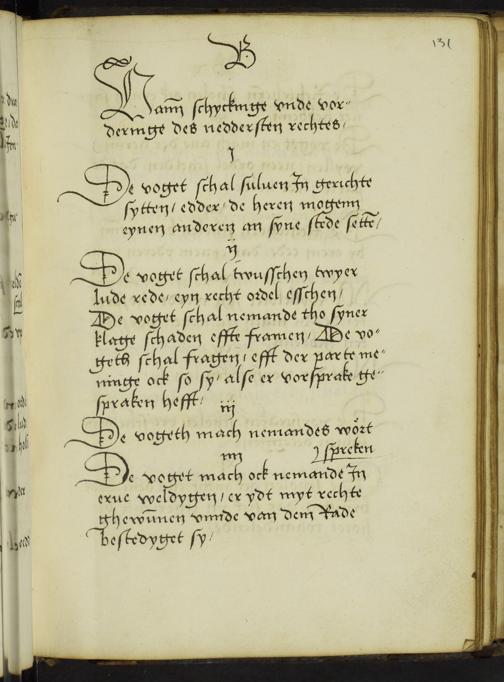 131
B
Vamm schyckinge vnde vor-
deringe des neddersten rechtes,
j
De voget schal suluen Jn gerichte
sytten, edder, de heren mogenn
eynen anderen an syne stede sette,
ij
De voget schal twusschen twyer
lude rede, eyn recht ordel esschen,
De voget schal nemande tho syner
klage schaden effte framen, De vo-
geth schal fragen, efft der parte me-
ninge ock so sy, alse er vorsprake ge-
spraken hefft,
iij
De vogeth mach nemandes wört
spreken
iiij
De voget mach ock nemande Jn
erue weldygen, er ydt myt rechte
ghewunnen vnnde van dem Rade
bestedyget sy,